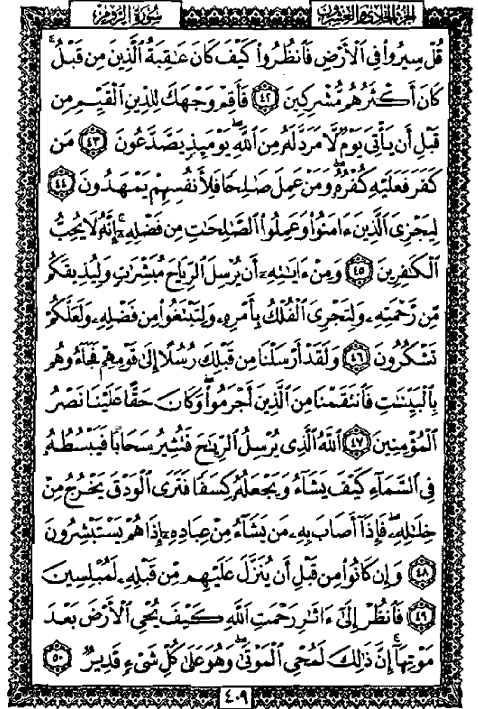 سورة الروم الجزء الحادي والعشرون
قُلْ سِيرُوا۟ فِى ٱلْأَرْضِ فَٱنظُرُوا۟ كَيْفَ كَانَ عَـٰقِبَةُ ٱلَّذِينَ مِن قَبْلُ ۚ
كَانَ أَكْثَرُهُم مُّشْرِكِينَ ٤٢ فَأَقِمْ وَجْهَكَ لِلدِّينِ ٱلْقَيِّمِ مِن
قَبْلِ أَن يَأْتِىَ يَوْمٌ لَّا مَرَدَّ لَهُۥ مِنَ ٱللَّهِ ۖ يَوْمَئِذٍ يَصَّدَّعُونَ ٤٣ مَن
كَفَرَ فَعَلَيْهِ كُفْرُهُۥ ۖ وَمَنْ عَمِلَ صَـٰلِحًا فَلِأَنفُسِهِمْ يَمْهَدُونَ ٤٤
لِيَجْزِىَ ٱلَّذِينَ ءَامَنُوا۟ وَعَمِلُوا۟ ٱلصَّـٰلِحَـٰتِ مِن فَضْلِهِۦٓ ۚ إِنَّهُۥ لَا يُحِبُّ
ٱلْكَـٰفِرِينَ ٤٥ وَمِنْ ءَايَـٰتِهِۦٓ أَن يُرْسِلَ ٱلرِّيَاحَ مُبَشِّرَٰتٍ وَلِيُذِيقَكُم
مِّن رَّحْمَتِهِۦ وَلِتَجْرِىَ ٱلْفُلْكُ بِأَمْرِهِۦ وَلِتَبْتَغُوا۟ مِن فَضْلِهِۦ وَلَعَلَّكُمْ
تَشْكُرُونَ ٤٦ وَلَقَدْ أَرْسَلْنَا مِن قَبْلِكَ رُسُلًا إِلَىٰ قَوْمِهِمْ فَجَآءُوهُم
بِٱلْبَيِّنَـٰتِ فَٱنتَقَمْنَا مِنَ ٱلَّذِينَ أَجْرَمُوا۟ ۖ وَكَانَ حَقًّا عَلَيْنَا نَصْرُ
ٱلْمُؤْمِنِينَ ٤٧ ٱللَّهُ ٱلَّذِى يُرْسِلُ ٱلرِّيَـٰحَ فَتُثِيرُ سَحَابًا فَيَبْسُطُهُۥ
فِى ٱلسَّمَآءِ كَيْفَ يَشَآءُ وَيَجْعَلُهُۥ كِسَفًا فَتَرَى ٱلْوَدْقَ يَخْرُجُ مِنْ
خِلَـٰلِهِۦ ۖ فَإِذَآ أَصَابَ بِهِۦ مَن يَشَآءُ مِنْ عِبَادِهِۦٓ إِذَا هُمْ يَسْتَبْشِرُونَ
٤٨ وَإِن كَانُوا۟ مِن قَبْلِ أَن يُنَزَّلَ عَلَيْهِم مِّن قَبْلِهِۦ لَمُبْلِسِينَ
٤٩ فَٱنظُرْ إِلَىٰٓ ءَاثَـٰرِ رَحْمَتِ ٱللَّهِ كَيْفَ يُحْىِ ٱلْأَرْضَ بَعْدَ
مَوْتِهَآ ۚ إِنَّ ذَٰلِكَ لَمُحْىِ ٱلْمَوْتَىٰ ۖ وَهُوَ عَلَىٰ كُلِّ شَىْءٍ قَدِيرٌ ٥٠
٤٠٩